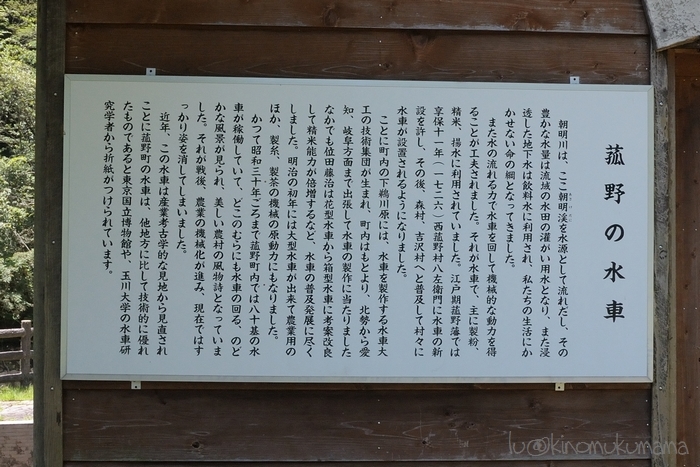 菰野の水車
朝明川は、ここ朝明渓を水源として流れだし、その
豊かな水量は流域の水田の灌がい用水となり、また浸
透した地下水は飲料水に利用され、私たちの生活にか
かせない命の綱となってきました。
また水の流れる力で水車を回して機械的な動力を得
ることが工夫されました。それが水車で、主に製粉、
精米、揚水に利用されていました。江戸期菰野藩では
享保十一年（一七二六）西菰野村八左衛門に水車の新
設を許し、その後、森村、吉沢村へと普及して村々に
水車が設置されるようになりました。
ことに町内の下鵜川原には、水車を製作する水車大
工の技術集団が生まれ、町内はもとより、北勢から愛
知、岐阜方面まで出張して水車の製作に当たりました
なかでも位田藤治は花型水車から箱型水車に考案改良
して精米能力が倍増するなど、水車の普及発展に尽く
しました。明治の初年には大型水車が出来て農業用の
ほか、製糸、製茶の機械の原動力にもなりました。
かつて昭和三十年ごろまで菰野町内では八十基の水
車が稼働していて、どこのむらにも水車の回る、のど
かな風景が見られ、美しい農村の風物詩となっていま
した。それが戦後、農業の機械化が進み、現在ではす
っかり姿を消してしまいました。
近年、この水車は産業考古学的な見地から見直され
ことに菰野町の水車は、他地方に比して技術的に優れ
たものであると東京国立博物館や、玉川大学の水車研
究学者から折紙がつけられています。
lu@kinomukumama